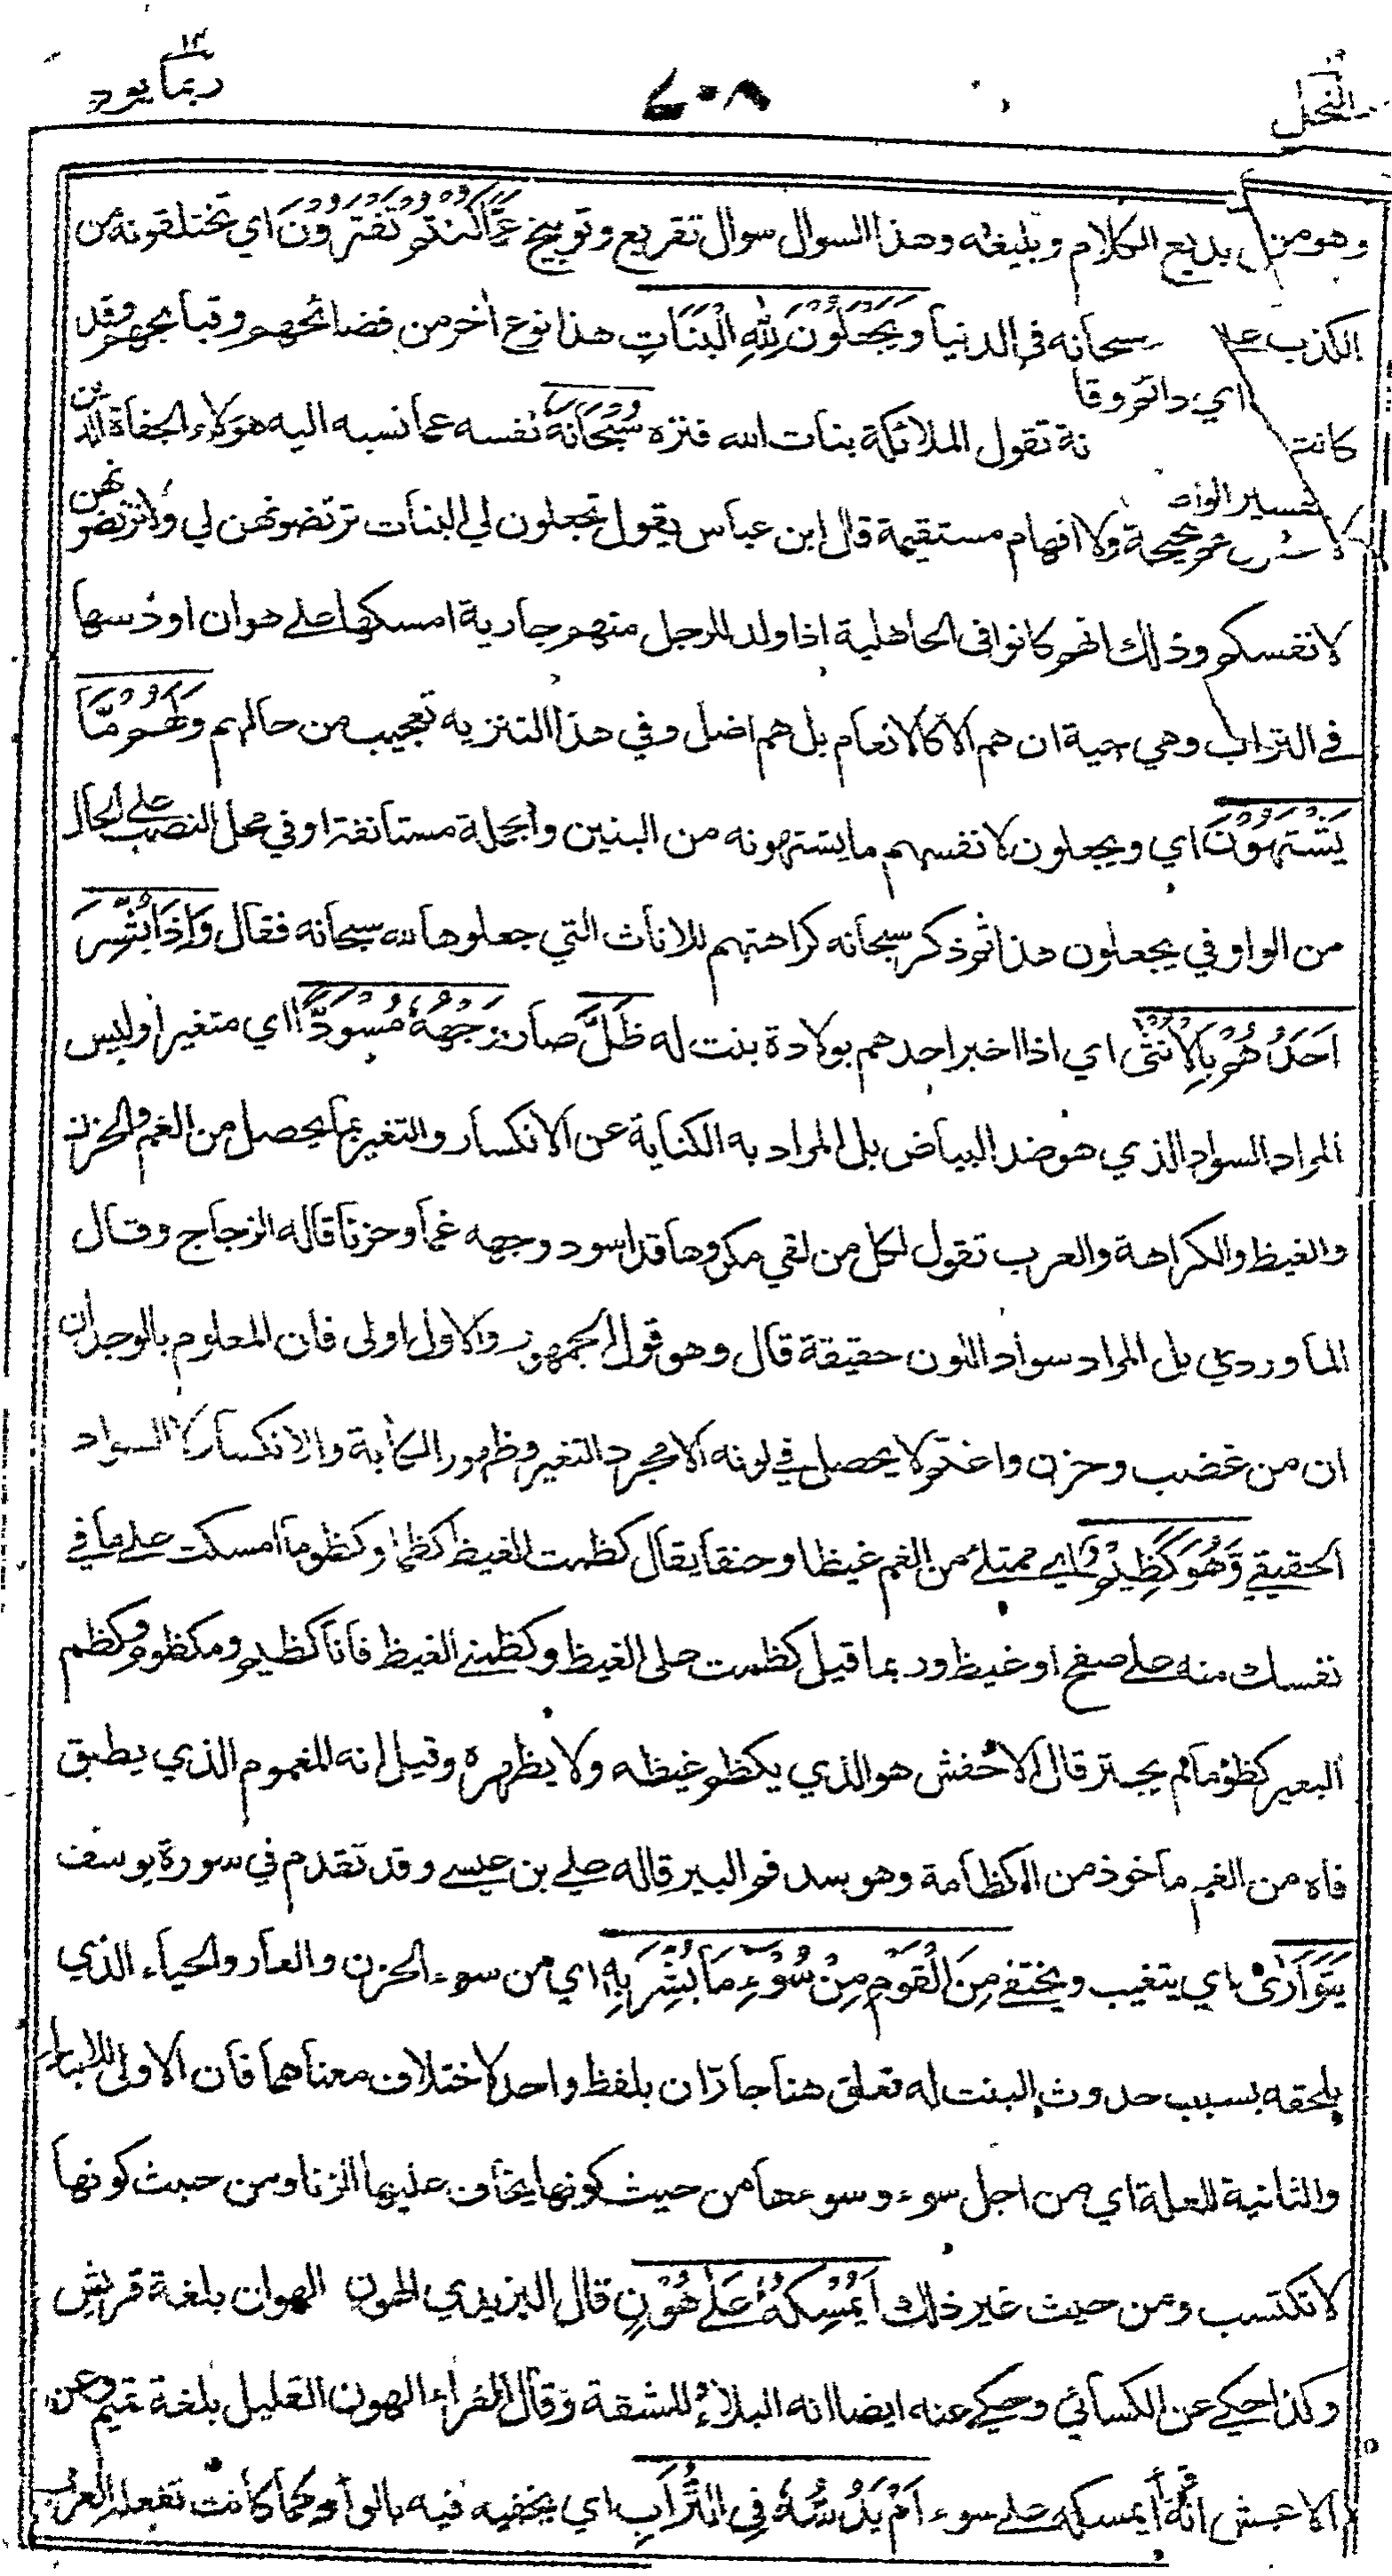 النحل
٧٠٨
ربما ١٤
وهو من بديع الكلام وبليغه وهذا السوال سوال تقريع وتوبيخ عَمَّا كُنْتُمْ تَفْتَرُونَ اي تختلقونه من
الكذب على سبحانه في الدنيا وَيَجْعَلُوْنَ لِلّٰهِ الْبَنَاتِ هذا نوع اخر من فضائحهم وقبائحهم وقد
كانت نة تقول الملائكة بنات الله فنزه سُبْحَانَهُ نفسه عما نسبه اليه هؤلاء الجفاة الذين
لا صحيحة ولا افهام مستقيمة قال ابن عباس يقول تجعلون لي البنات ترتضونهن لي ولا ترتضونهن
لانفسكم وذلك انهم كانوا في الجاهلية اذا ولد للرجل منهم جارية امسكها على هوان او دسها
في التراب وهي حية ان هم الا كالانعام بل هم اضل وفي هذا التنزيه تعجيب من حالهم وَلَهُمْ مَّا
يَشْتَهُوْنَ اي ويجعلون لانفسهم ما يشتهونه من البنين والجملة مستأنفة او في محل النصب على الحال
من الواو في يجعلون هذا ثم ذكر سبحانه كراهتهم للاناث التي جعلوها لله سبحانه فقال وَاِذَا بُشِّرَ
اَحَدُهُمْ بِالْاُنْثٰى اي اذا اخبر احدهم بولادة بنت له ظَلَّ صار وَجْهُهُ مُسْوَدًّا اي متغيرا وليس
المراد السواد الذي هو ضد البياض بل المراد به الكناية عن الانكسار والتغير بما يحصل من الغم والحزن
والغيظ والكراهة والعرب تقول لكل من لقي مكروها قد اسود وجهه غما وحزنا قاله الزجاج وقال
الماوردي بل المراد سواد اللون حقيقة قال وهو قول الجمهور والاول اولى فان المعلوم بالوجدان
ان من غضب وحزن واغتم لا يحصل في لونه الا مجرد التغير وظهور الكأبة والانكسار لا السواد
الحقيقي وَهُوَ كَظِيْمٌ اي ممتلئ من الغم غيظا وحنقا يقال كظمت الغيظ كظما وكظوما امسكت على ما في
نفسك منه على صفح او غيظ وربما قيل كظمت على الغيظ وكظمني الغيظ فانا كظيم ومكظوم وكظم
البعير كظوما لم يجتر قال الاخفش هو الذي يكظم غيظه ولا يظهره وقيل انه المغموم الذي يطبق
فاه من الغم ماخوذ من الكظامة وهو سد فم البير قاله علي بن عيسى وقد تقدم في سورة يوسف
يَتَوَارٰى اي يتغيب ويختفي مِنَ الْقَوْمِ مِنْ سُوْٓءِ مَا بُشِّرَ بِهٖ اي من سوء الحزن والعار والحياء الذي
يلحقه بسبب حدوث البنت له تعلق هنا جاران بلفظ واحد لاختلاف معناهما فان الاولى للابتداء
والثانية للعلة اي من اجل سوء وسوءها من حيث كونها يخاف عليها الزنا ومن حيث كونها
لا تكتسب ومن حيث غير ذلك اَيُمْسِكُهٗ عَلٰى هُوْنٍ قال اليزيدي الهون الهوان بلغة قريش
وكذا حكي عن الكسائي وحكي عنه ايضا انه البلاء والمشقة وقال الفراء الهون القليل بلغة تميم وعن
الاعمش انه أيمسكه على سوء اَمْ يَدُسُّهٗ فِي التُّرَابِ اي يخفيه فيه بالوأد كما كانت تفعله العرب